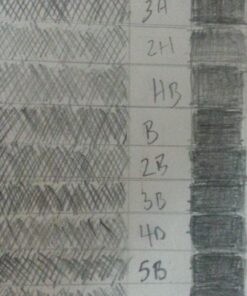 3H
2H
HB
B
2B
3B
4B
5B